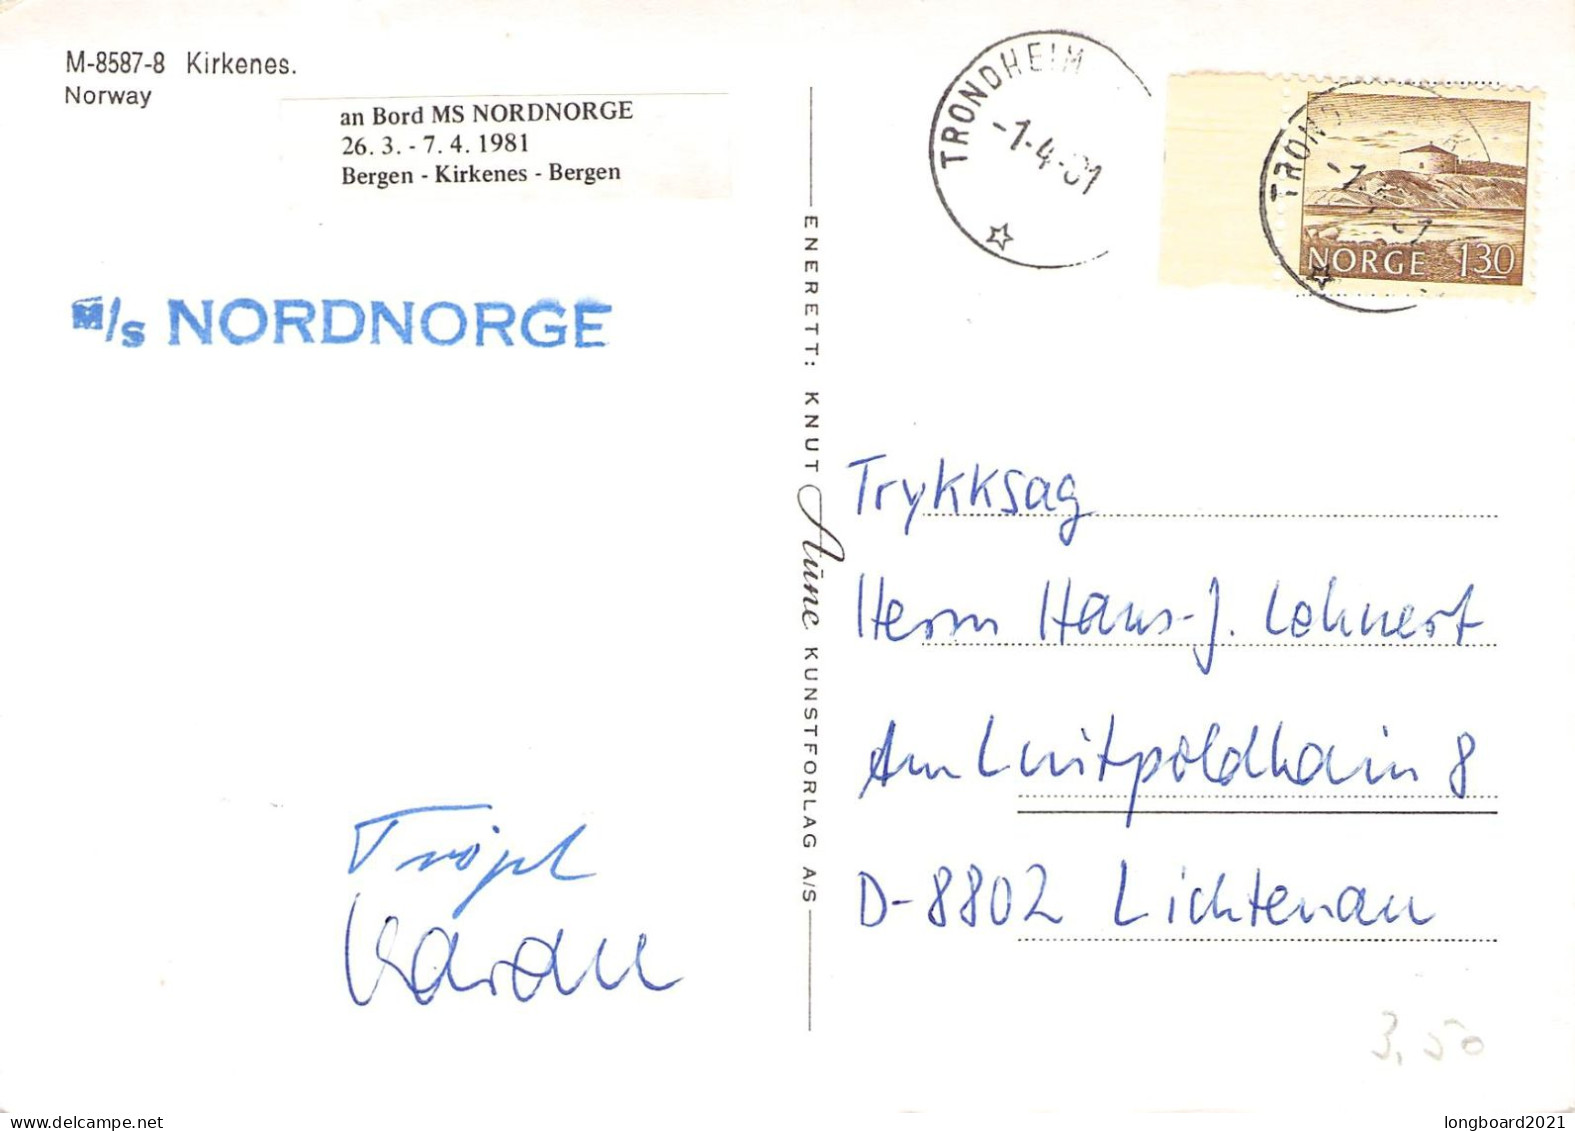 M-8587-8 Kirkenes.
Norway
an Bord MS NORDNORGE
26. 3. - 7. 4. 1981
Bergen - Kirkenes - Bergen
M/s NORDNORGE
ENERETT: KNUT Aune KUNSTFORLAG A/S
TRONDHEIM
-1-4-81
TROND
NORGE 130
Trykksag
Herrn Hans-J. Lehnert
Am Luitpoldhain 8
D-8802 Lichtenau
3,50
longboard2021